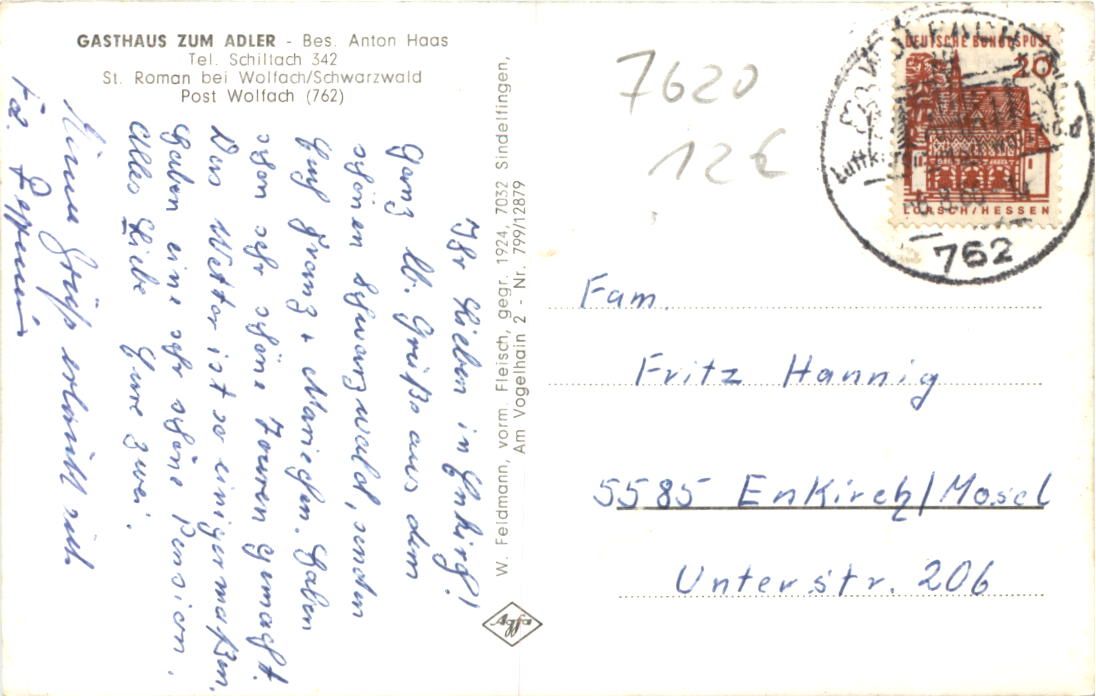 GASTHAUS ZUM ADLER - Bes. Anton Haas
Tel. Schiltach 342
St. Roman bei Wolfach/Schwarzwald
Post Wolfach (762)
Ihr Lieben in Enkirch!
Ganz lb. Grüße aus dem
schönen Schwarzwald, senden
Euch Franz + Mariechen. Haben
schon sehr schöne Touren gemacht.
Das Wetter ist so einigermaßen.
Haben eine sehr schöne Pension.
Alles Liebe Eure zwei.
Einen Gruß erlaubt sich
W. Feldmann, vorm. Fleisch, gegr. 1924, 7032 Sindelfingen,
Am Vogelhain 2 - Nr. 799/12879
Agfa
7620
12€
DEUTSCHE BUNDESPOST
20
LORSCH/HESSEN
WOLFACH
762
Fam.
Fritz Hannig
5585 Enkirch/Mosel
Unterstr. 206